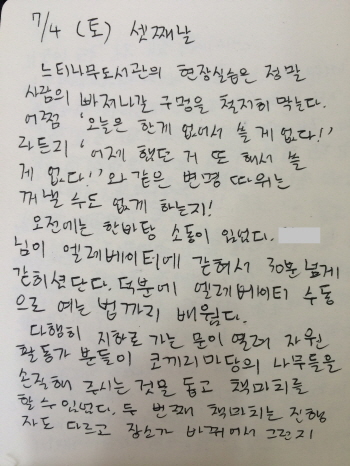 7/4 (토) 셋째날
느티나무도서관의 현장실습은 정말
사람의 빠져나갈 구멍을 철저히 막는다.
어쩜 '오늘은 한게 없어서 쓸 게 없다!'
라든지 '어제 했던 거 또 해서 쓸
게 없다!'와 같은 변명 따위는
꺼낼 수도 없게 하는지!
오전에는 한바탕 소동이 있었다.
님이 엘레베이터에 갇혀서 30분 넘게
갇히셨단다. 덕분에 엘레베이터 수동
으로 여는 법까지 배웠다.
다행히 지하로 가는 문이 열려 자원
활동가 분들이 코끼리마당의 나무들을
손질해 주시는 것을 돕고 책마치를
할 수 있었다. 두 번째 책마치는 진행
자도 다르고 장소가 바뀌어서 그런지